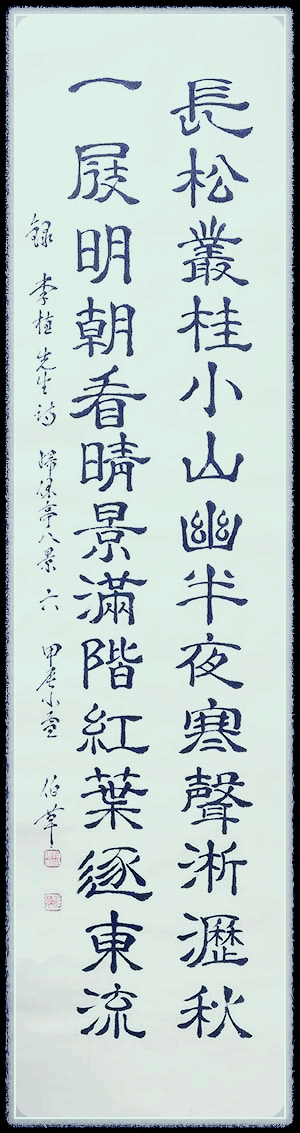 長松叢桂小山幽半夜寒聲淅瀝秋
一展明朝看晴景滿階紅葉逐東流
錄 李植先生詩 歸休亭八景 六 甲辰小雪 伯華